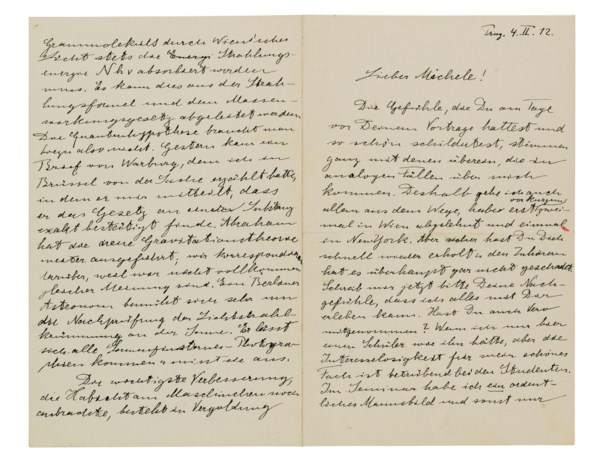 Grammolekuls durch Wien'sches
Licht stets die Energi Strahlungs-
energie Nhν absorbiert werden
muss. Es kann dies aus der Strah-
lungsformel und dem Massen-
wirkungsgesetz abgeleitet werden
Die Quantenhypothese braucht man
dazu also nicht. Gestern kam ein
Brief von Warburg, dem ich in
Brüssel von der Sache erzählt hatte,
in dem er mir mitteilt, dass
er das Gesetz an einer Substanz
exakt bestätigt fand. Abraham
hat die neue Gravitationstheorie
weiter ausgeführt, wir korrespondieren
darüber, weil wir nicht vollkommen
gleicher Meinung sind. Ein Berliner
Astronom bemüht sich sehr um
die Nachprüfung der Lichtstrahl-
krümmung an der Sonne. Er lässt
sich alle Sonnenfinsternis-Photogra-
phien kommen u misst sie aus.
Die wichtigste Verbesserung,
die Habicht am Maschinchen noch
anbrachte, besteht in Vergoldung
Prag. 4. II. 12.
Lieber Michele!
Die Gefühle, die Du am Tage
vor Deinem Vortrage hattest und
so schön schilderst, stimmen
ganz mit denen überein, die in
analogen Fällen über mich
kommen. Deshalb gehe ich auch
vor kurzem
allem aus dem Wege, habe erst zwei-
mal in Wien abgelehnt und einmal
in NewYork. Aber sicher hast Du Dich
schnell wieder erholt u den Zuhörern
hat es überhaupt gar nicht geschadet.
Schreib mir jetzt bitte Deine Nach-
gefühle, dass ich alles mit Dir
erleben kann. Hast Du auch Vero
mitgenommen? Wenn ich nur hier
einen Schüler wie ihn hätte, aber die
Interesselosigkeit für mein schönes
Fach ist betrübend bei den Studenten.
Im Seminar habe ich ein ordent-
liches Mannsbild und sonst nur